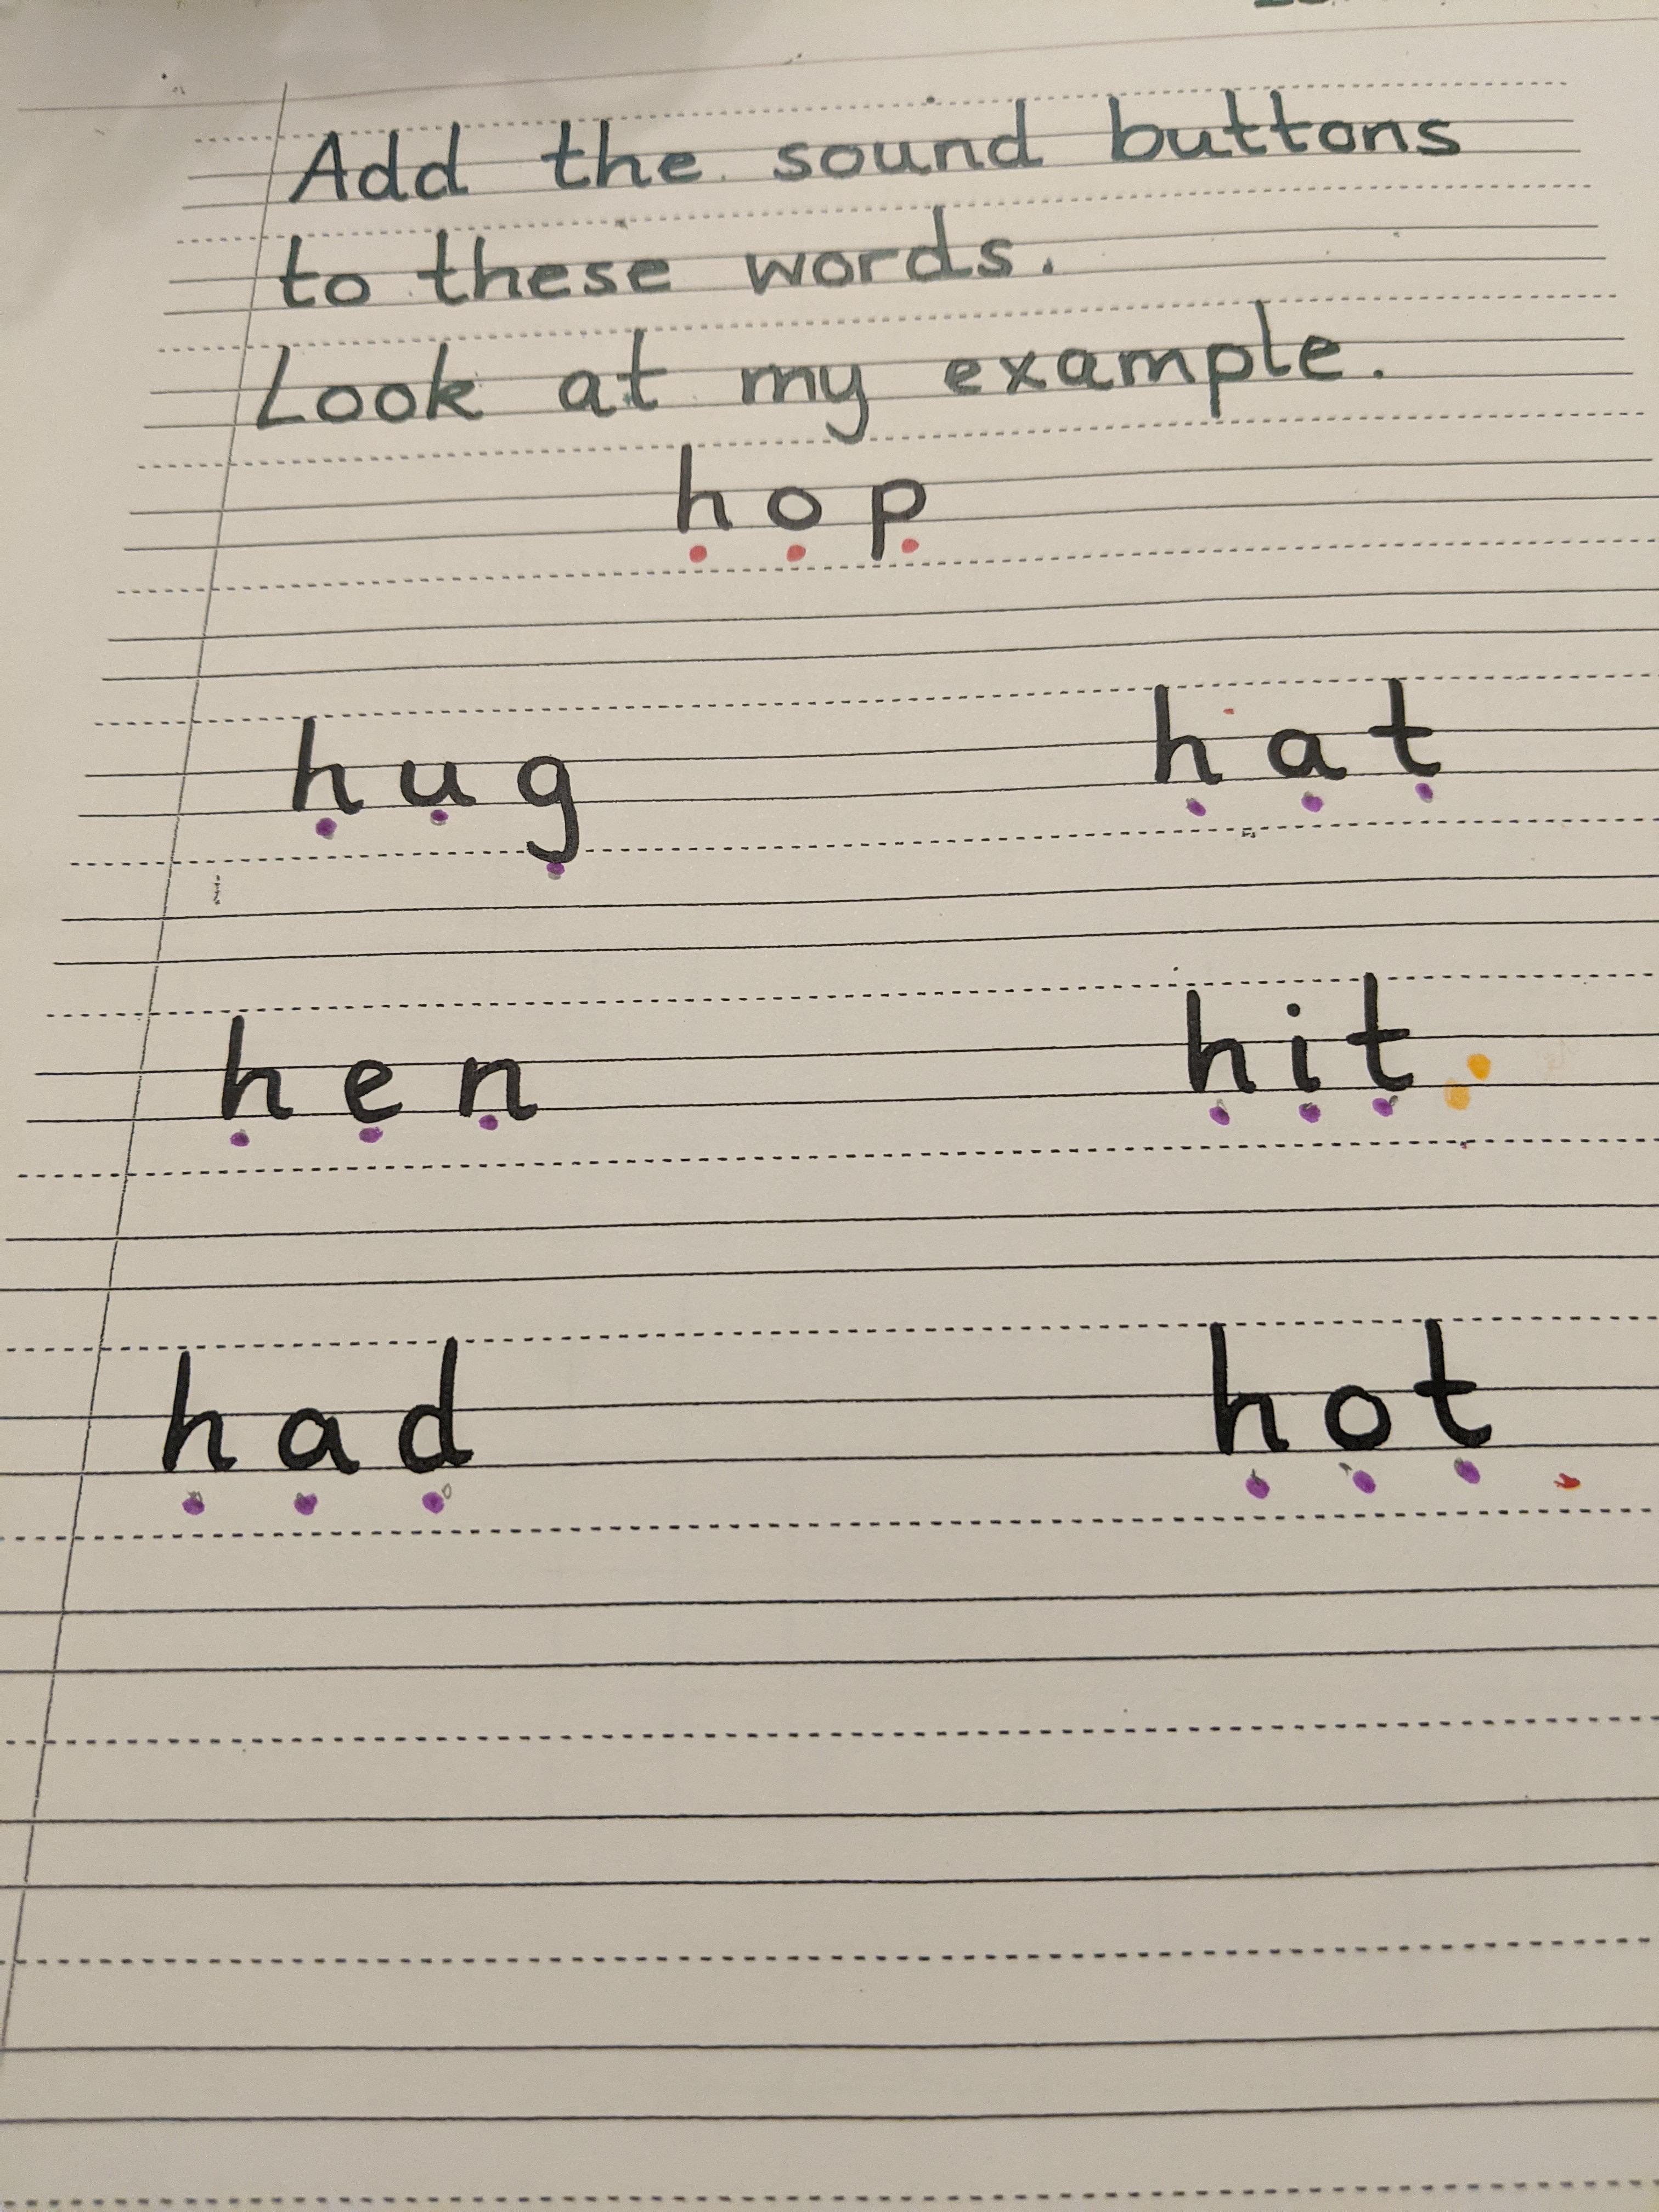 Add the sound buttons
to these words.
Look at my example.
hop
hug hat
hen hit
had hot